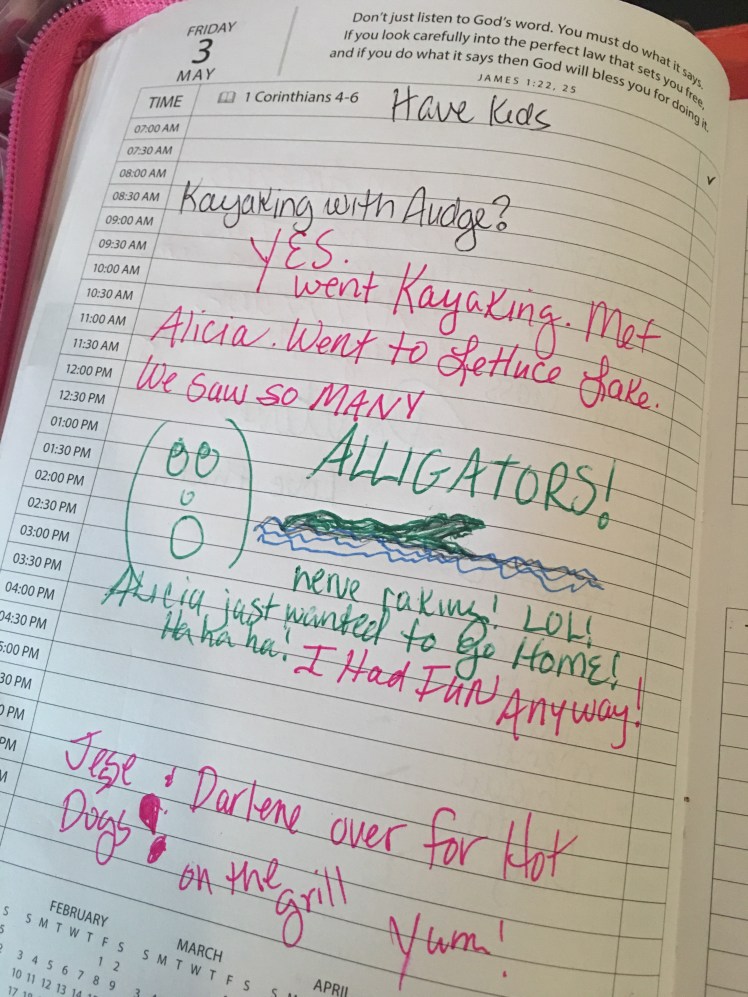 FRIDAY
3
MAY
Don't just listen to God's word. You must do what it says.
If you look carefully into the perfect law that sets you free,
and if you do what it says then God will bless you for doing it.
JAMES 1:22, 25
TIME
1 Corinthians 4-6
Have Kids
07:00 AM
07:30 AM
08:00 AM
08:30 AM
09:00 AM
09:30 AM
10:00 AM
10:30 AM
11:00 AM
11:30 AM
12:00 PM
12:30 PM
01:00 PM
01:30 PM
02:00 PM
02:30 PM
03:00 PM
03:30 PM
04:00 PM
04:30 PM
5:00 PM
30 PM
0 PM
PM
M
Kayaking with Audge?
YES.
went Kayaking. Met
Alicia. Went to Lettuce Lake.
We Saw so MANY
ALLIGATORS!
nerve raking! LOL!
Alicia just wanted to go Home!
Ha ha ha! I Had FUN Anyway!
Jese & Darlene over for Hot
Dogs!
on the grill
Yum!
FEBRUARY
S M T W T F S
1 2
3 4 5 6 7 8 9
10 11 12 13 14
17 18
MARCH
S M T W T F S
3
APRIL
S M